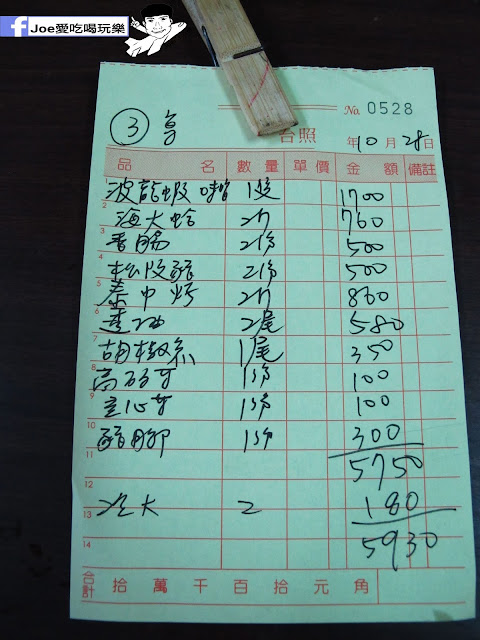 Joe愛吃喝玩樂
No. 0528
③
台照
年10月28日
品名 數量 單價 金額 備註
1 波龍蝦 1隻 1700
2 海大蛤 2斤 760
3 香腸 2份 500
4 松阪豬 2份 500
5 泰中 2斤 860
6 2尾 580
7 胡椒魚 1尾 350
8 高 1份 100
9 空心 1份 100
10 豬腳 1份 300
11 5750
12
13 大 2 180
14 5930
合計 拾 萬 千 百 拾 元 角